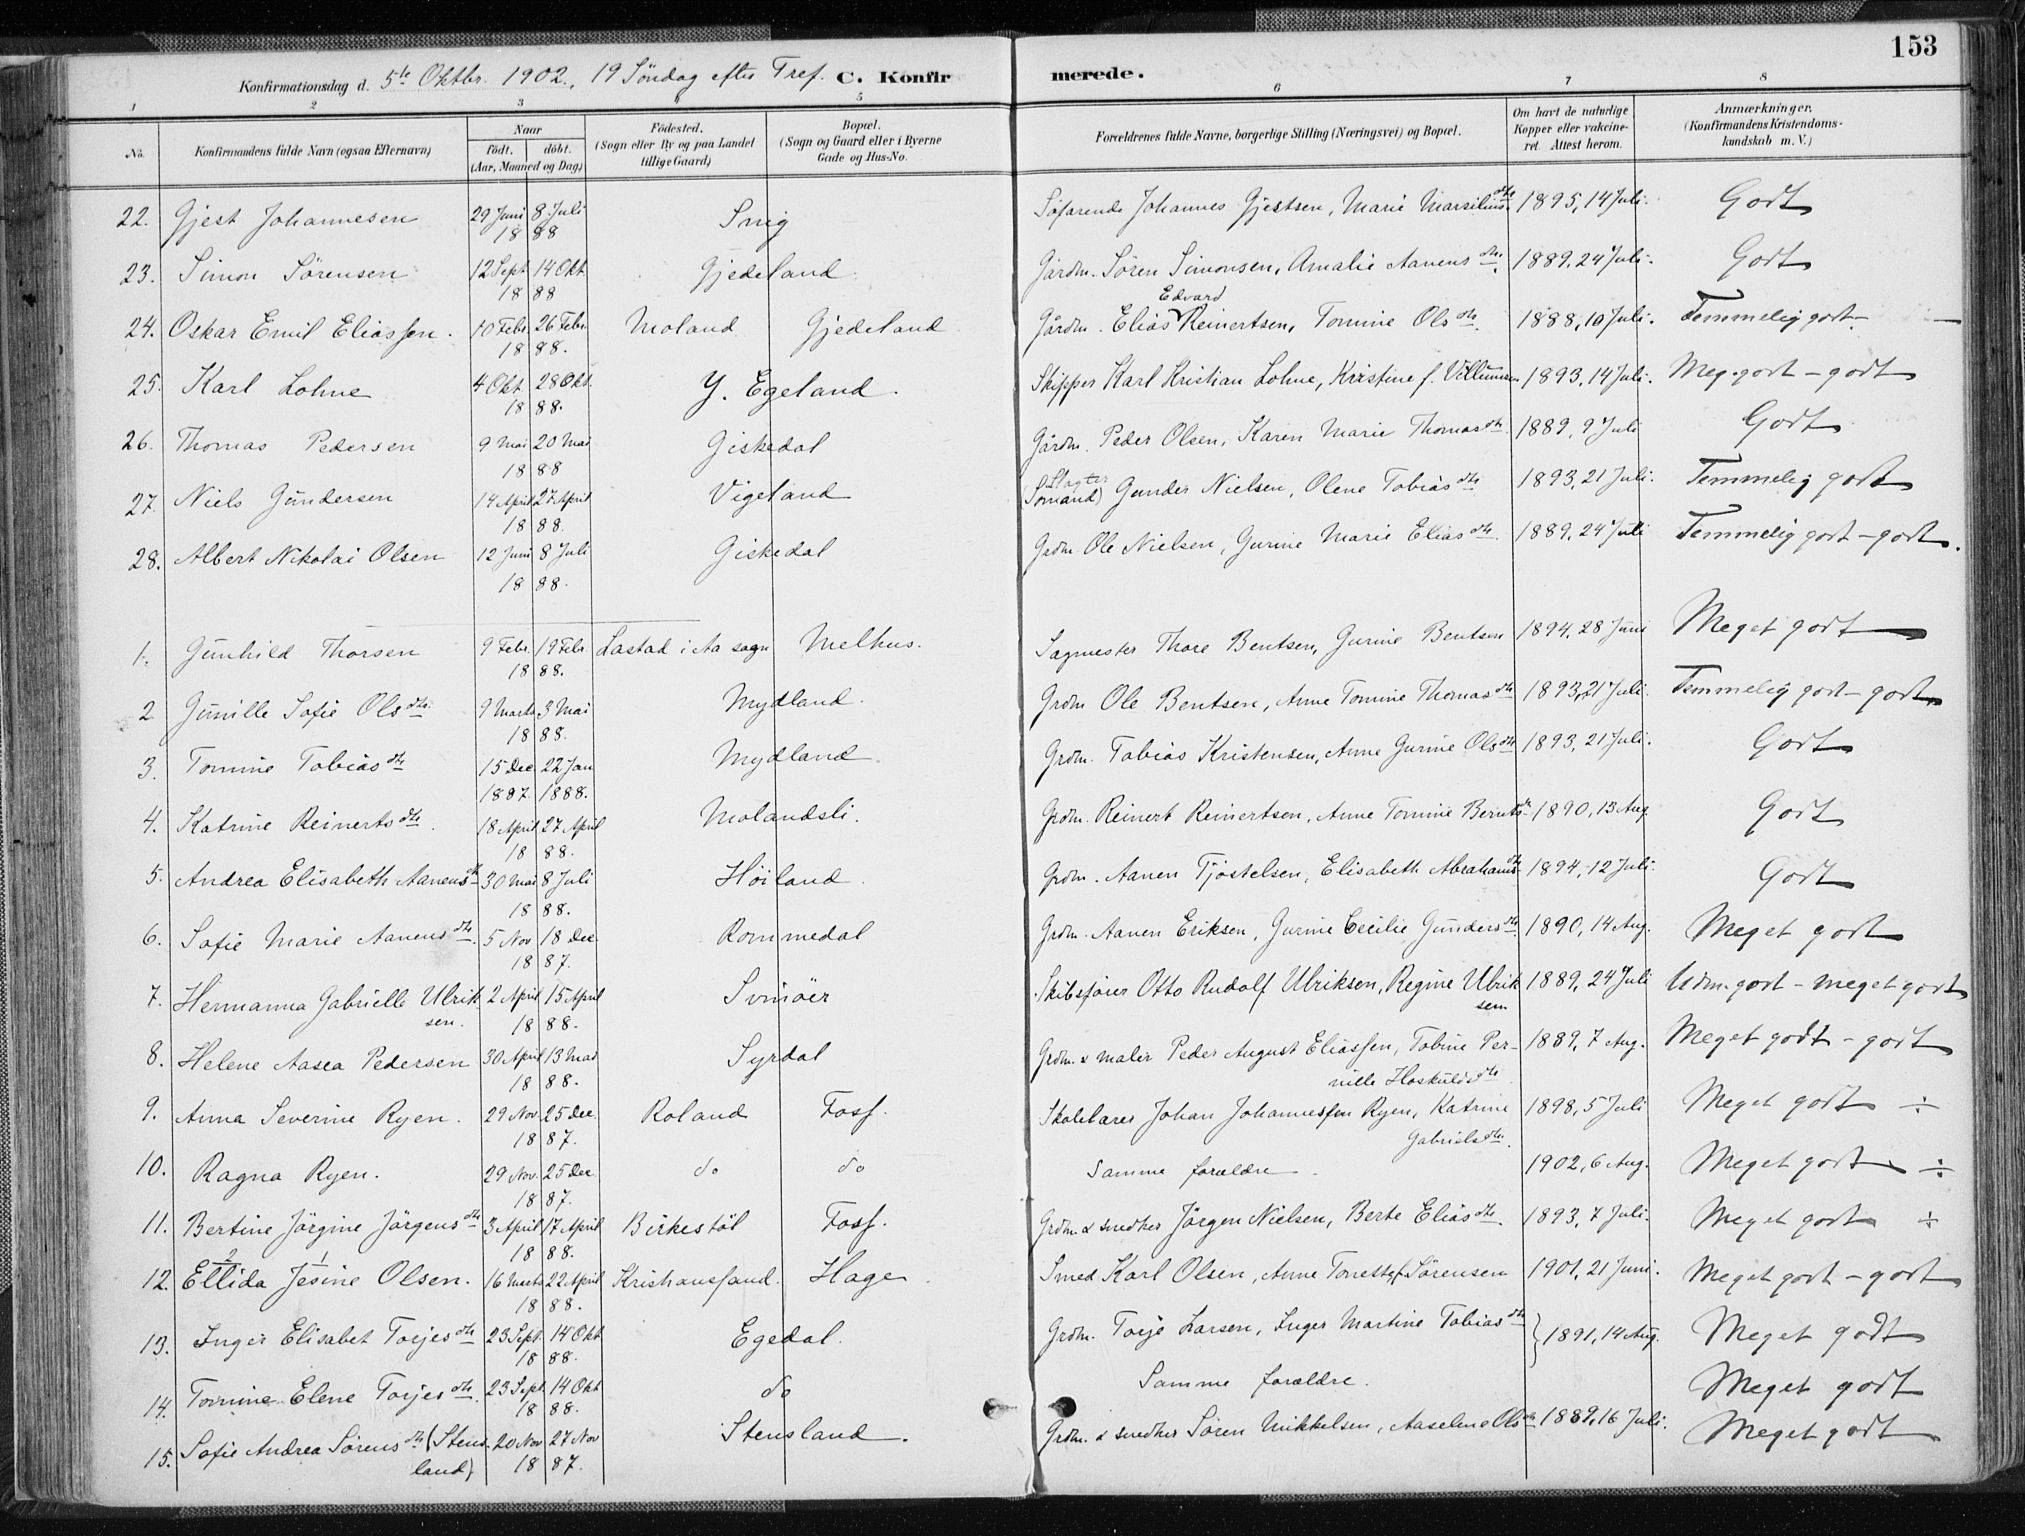 153
Konfirmationsdag d. 5te Oktbr. 1902., 19 Söndag efter Tref. C. Konfirmerede.
1 2 3 4 5 6 7 8
No. Konfirmandens fulde Navn (ogsaa Efternavn) Naar födt. döbt. (Aar, Maaned og Dag) Födested. (Sogn eller By og paa Landet tillige Gaard) Bopæl. (Sogn og Gaard eller i Byerne Gade og Hus-No. Forældrenes fulde Navne, borgerlige Stilling (Næringsvei) og Bopæl. Om havt de naturlige Kopper eller vakcineret. Attest herom. Anmærkninger. (Konfirmandens Kristendomskundskab m. V.)
22. Gjest Johannesen 29 Juni 8 Juli 1888 Snig Söfarende Johannes Gjestsen, Marie Marsiliusdtr 1895, 14 Juli. Godt
23. Simon Sörensen 12 Sept. 14 Okt. 1888 Gjedeland Gårdm. Sören Simonsen, Amalie Aanensdtr. 1889, 24 Juli. Godt
24. Oskar Emil Eliassen. 10 Febr. 26 Febr. 1888. Moland Gjedeland Gårdm. Elias Edvard Reinertsen, Tomine Olsdtr. 1888, 10 Juli. Temmelig godt. —
25. Karl Lohne 4 Okt. 28 Okt. 1888. Y. Egeland. Skipper Karl Kristian Lohne, Kristine f. Villumsen 1893, 14 Juli. Meg. godt - godt
26. Thomas Pedersen 9 Mai 20 Mai 1888 Giskedal Gårdm. Peder Olsen, Karen Marie Thomasdtr. 1889, 9 Juli Godt
27. Niels Gundersen 14 April 27 April 1888. Vigeland Slagter (Sömand) Gunder Nielsen, Olene Tobiasdtr 1893, 21 Juli. Temmelig godt
28. Albert Nikolai Olsen 12 Juni 8 Juli 1888. Giskedal Grdm. Ole Nielsen, Gurine Marie Eliasdtr. 1889, 24 Juli Temmelig godt - godt.
1. Gunhild Thorsen 9 Febr. 19 Febr. 1888. Lastad i Aa sogn Melhus. Sagmester Thore Bentsen, Gurine Bentsen 1894, 28 Juni Meget godt
2 Gunille Sofie Olsdtr. 9 Marts 3 Mai 1888. Mydland. Grdm Ole Bentsen, Anne Tomine Thomasdtr 1893, 21 Juli. Temmelig godt - godt
3. Tomine Tobiasdtr 15 Dec. 22 Jan 1887. 1888. Mydland. Grdm. Tobias Kristensen, Anne Gurine Olsdtr 1893, 21 Juli. Godt
4. Katrine Reinertsdtr. 18 April 27 April 1888. Molandsli. Grdm. Reinert Reinertsen, Anne Tomine Berntsdtr 1890, 13 Aug. Godt
5. Andrea Elisabeth Aanensdtr 30 Mai 8 Juli 1888. Höiland. Grdm. Aanen Tjöstelsen, Elisabeth Abrahamsdtr 1894, 12 Juli. Godt
6. Sofie Marie Aanensdtr. 5 Nov 18 Dec. 1887. Rommedal Grdm. Aanen Eriksen, Gurine Cecilie Gundersdtr. 1890, 14 Aug. Meget godt
7. Hermanna Gabrielle Ulriksen. 2 April 15 April 1888. Svinöer Skibsförer Otto Rudolf Ulriksen, Regine Ulriksen 1889, 24 Juli Udm. godt - meget godt
8. Helene Aasea Pedersen 30 April 13 Mai 1888. Syrdal Grdm. & maler Peder August Eliassen, Tobine Pernille Hoskuldsdtr 1889, 7 Aug. Meget godt - godt
9. Anna Severine Ryen. 29 Nov. 25 Dec. 1887. Roland Foss. Skolelærer Johan Johannessen Ryen, Katrine Gabrielsdtr. 1898, 5 Juli Meget godt ÷
10. Ragna Ryen. 29 Nov. 25 Dec 1887. do do Samme forældre. 1902, 6 Aug. Meget godt ÷
11. Bertine Jörgine Jörgensdtr 3 April 17 April 1888. Birkestöl Foss. Grdm. & snedker Jörgen Nielsen, Berte Eliasdtr. 1893, 7 Juli. Meget godt ÷
2 1
12. Ellida Jesine Olsen. 16 Marts 22 April 1888. Kristianssand. Hage. Smed Karl Olsen, Anne Tonette f. Sörensen 1901, 21 Juni. Meget godt - godt
13. Inger Elisabet Torjesdtr 23 Sept. 14 Okt 1888. Egedal. Grdm. Torje Larsen, Inger Martine Tobiasdtr } 1891, 14 Aug. Meget godt
14. Tomine Elene Torjesdtr. 23 Sept. 14 Okt 1888. do Samme forældre. Meget godt
15. Sofie Andrea Sörensdtr (Stensland) 20 Nov 27 Nov 1887. Stensland. Grdm. & snedker Sören Mikkelsen, Aaselene Olsdtr 1889, 16 Juli. Meget godt